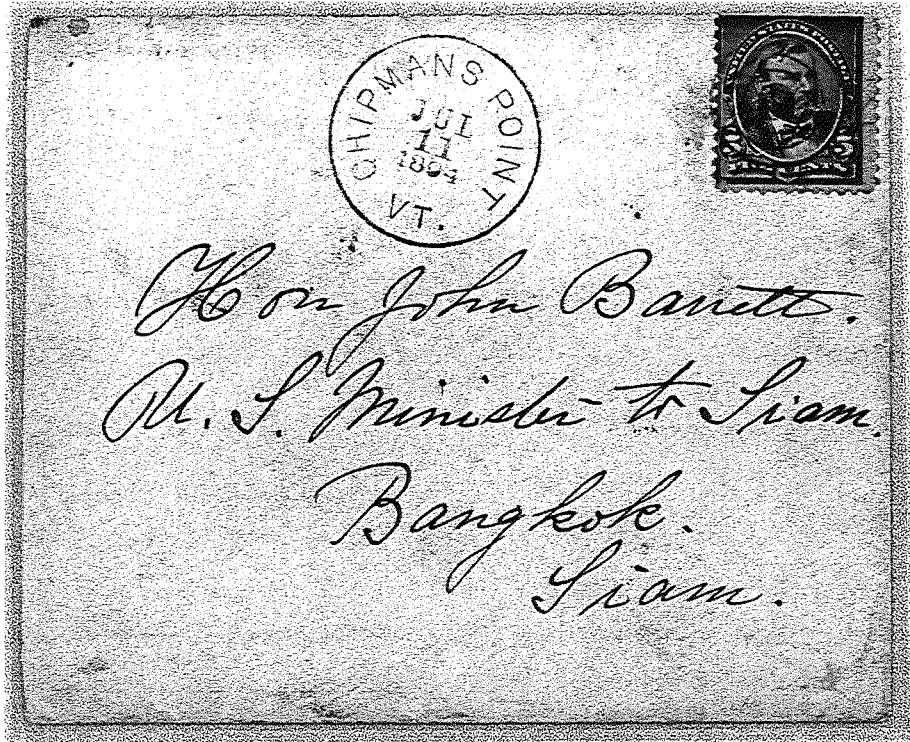 CHIPMANS POINT
JUL
11
1894
VT.
Hon John Barrett.
U. S. Minister to Siam.
Bangkok.
Siam.